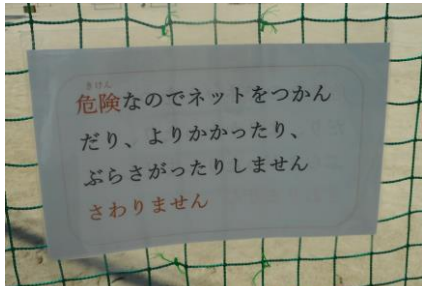 きけん
危険なのでネットをつかん
だり、よりかかったり、
ぶらさがったりしません
さわりません